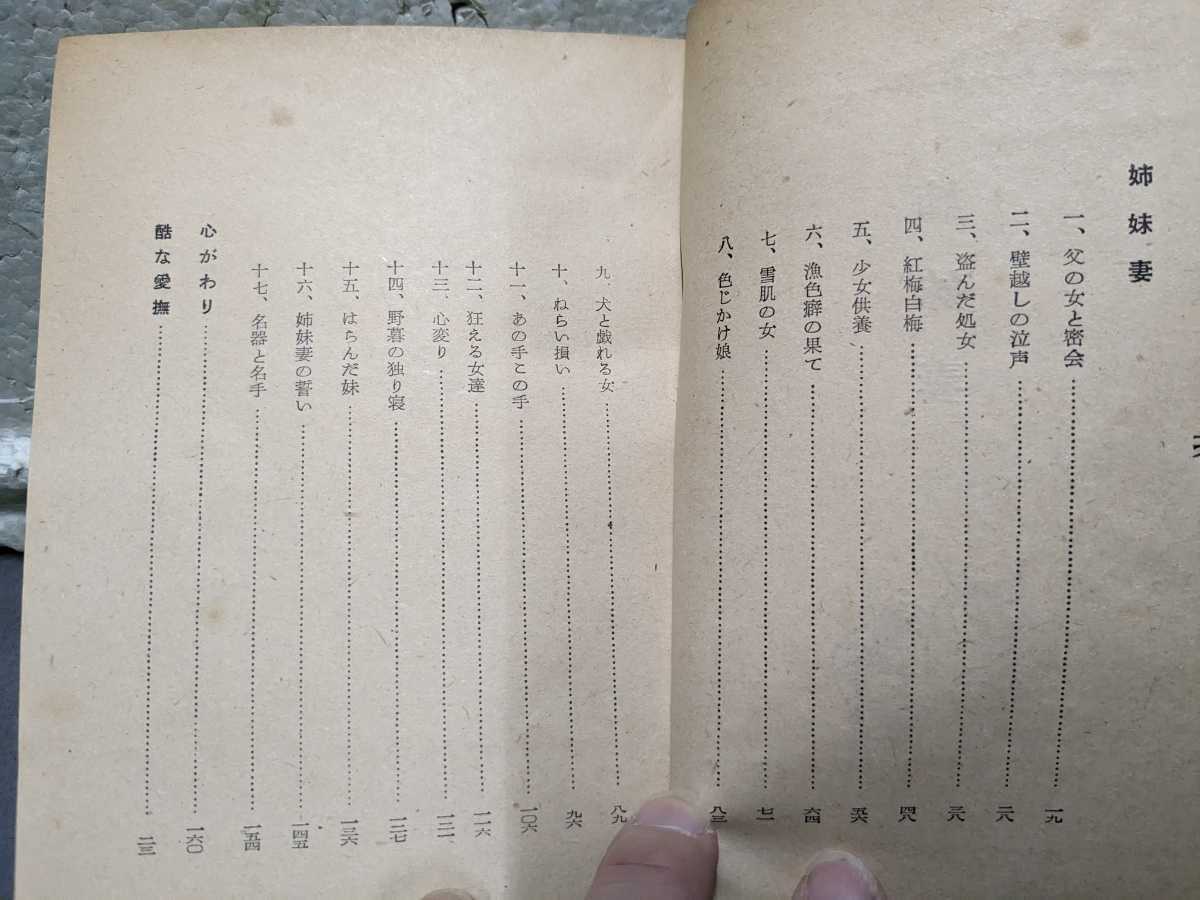 姉妹妻
一、父の女と密会……一九
二、壁越しの泣声……二八
三、盗んだ処女……三八
四、紅梅白梅……四八
五、少女供養……五六
六、漁色癖の果て……六四
七、雪肌の女……七一
八、色じかけ娘……八三
九、犬と戯れる女……八九
十、ねらい損い……九六
十一、あの手この手……一〇六
十二、狂える女達……一一六
十三、心変り……一二一
十四、野暮の独り寝……一二七
十五、はらんだ妹……一三六
十六、姉妹妻の誓い……一四五
十七、名器と名手……一五四
心がわり……一六〇
酷な愛撫……二一三